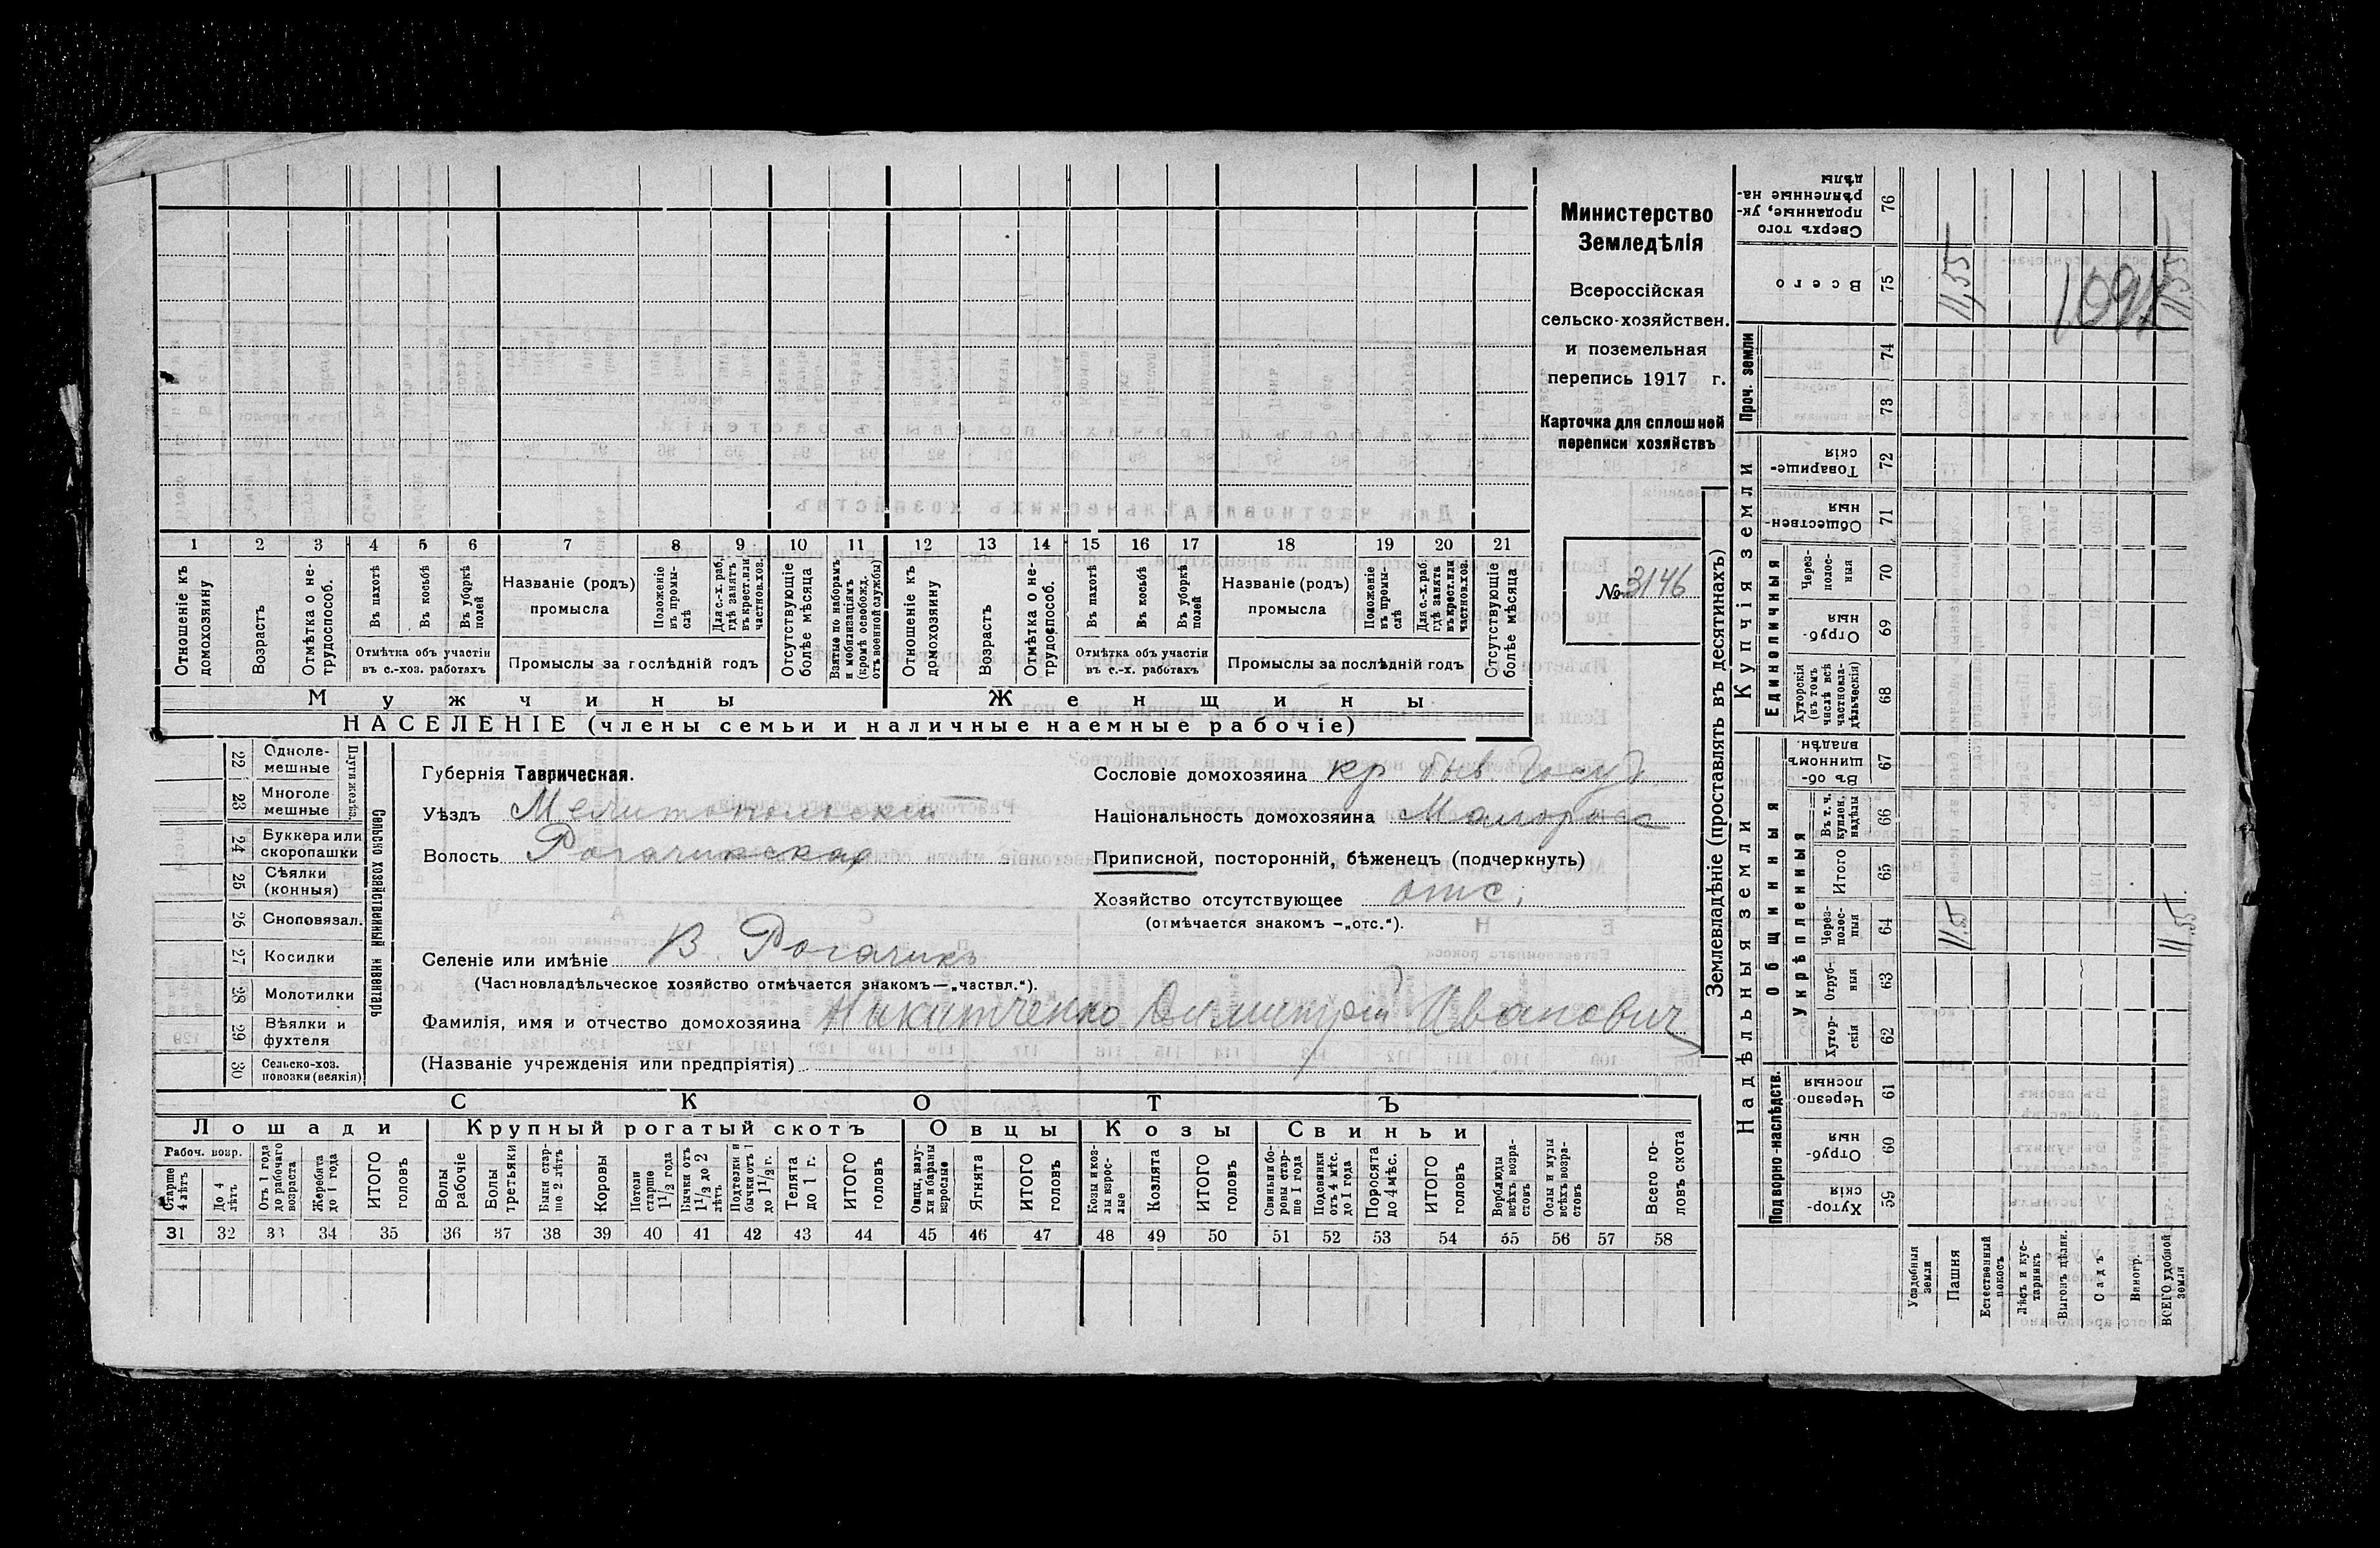 Министерство
Земледѣлія
Всероссійская
сельско-хозяйствен.
и поземельная
перепись 1917 г.
Карточка для сплошной
переписи хозяйствъ
№ 3146
1 2 3 4 5 6 7 8 9 10 11 12 13 14 15 16 17 18 19 20 21
Отношеніе къ домохозяину
Возрастъ
Отмѣтка о не-трудоспособ.
Въ пахотѣ
Въ косьбѣ
Въ уборкѣ полей
Отмѣтка объ участіи
въ с.-хоз. работахъ
Названіе (родъ)
промысла
Положеніе въ промы-слѣ
Для с.-х. раб. гдѣ занятъ въ крест. или частнов. хоз.
Промыслы за послѣдній годъ
Отсутствующіе болѣе мѣсяца
Взятые по наборамъ и мобилизаціямъ (кромѣ освобожд. отъ военной службы)
Отношеніе къ домохозяину
Возрастъ
Отмѣтка о не-трудоспособ.
Въ пахотѣ
Въ косьбѣ
Въ уборкѣ полей
Отмѣтка объ участіи
въ с.-х. работахъ
Названіе (родъ)
промысла
Положеніе въ промы-слѣ
Для с.-х. раб. гдѣ занята въ крест. или частнов. хоз.
Промыслы за послѣдній годъ
Отсутствующіе болѣе мѣсяца
Мужчины Женщины
НАСЕЛЕНІЕ (члены семьи и наличные наемные рабочіе)
Сельско хозяйственный инвентарь
Плуги желѣз.
22 Одноле-мешные
23 Многоле мешные
24 Буккера или скоропашки
25 Сѣялки (конныя)
26 Сноповязал.
27 Косилки
28 Молотилки
29 Вѣялки и фухтеля
30 Сельско-хоз. повозки (всякія)
Губернія Таврическая.
Уѣздъ Мелитопольскій
Волость Рогачикская
Сословіе домохозяина кр быв Госуд
Національность домохозяина Малоросс
Приписной, посторонній, бѣженецъ (подчеркнуть)
Хозяйство отсутствующее отс.
(отмѣчается знакомъ —„отс.“).
Селеніе или имѣніе В. Рогачикъ
(Частновладѣльческое хозяйство отмѣчается знакомъ—„частвл.“).
Фамилія, имя и отчество домохозяина Никитченко Димитрій Иванович
(Названіе учрежденія или предпріятія)
СКОТЪ
Лошади Крупный рогатый скотъ Овцы Козы Свиньи
Рабоч. возр.
Старше 4 лѣтъ
До 4 лѣтъ
Отъ 1 года до рабочаго возраста
Жеребята до 1 года
ИТОГО головъ
Волы рабочіе
Волы третьяки
Быки стар-ше 2 лѣтъ
Коровы
Нетели старше 1 1/2 года
Бычки отъ 1 1/2 до 2 лѣтъ
Подтелки и бычки отъ 1 до 1 1/2 г.
Телята до 1 г.
ИТОГО головъ
Овцы, валу-хи и бараны взрослые
Ягнята
ИТОГО головъ
Козы и коз-лы взрос-лые
Козлята
ИТОГО головъ
Свиньи и бо-ровы стар-ше 1 года
Подсвинки отъ 4 мѣс. до 1 года
Поросята до 4 мѣс.
ИТОГО головъ
Верблюды всѣхъ возра-стовъ
Ослы и мулы всѣхъ возра-стовъ
Всего го-ловъ скота
31 32 33 34 35 36 37 38 39 40 41 42 43 44 45 46 47 48 49 50 51 52 53 54 55 56 57 58
Землевладѣніе (проставлять въ десятинахъ)
Надѣльныя земли
Купчія земли
Проч. земли
Подворно-наслѣдств.
Общинныя
Укрѣпленныя
Единоличныя
Хутор-скія 59
Отруб-ныя 60
Черезпо-лосныя 61
Хутор-скія 62
Отруб-ныя 63
Через-полос-ныя 64 11.55 11.55
Итого 65
Въ т. ч. куплен. надѣлы 66
Въ об-щинномъ владѣн. 67
Хуторскія (въ томъ числѣ всѣ частновла-дѣльческія) 68
Отруб-ныя 69
Через-полос-ныя 70
Обществен-ныя 71
Товарище-скія 72
73
74
Всего 75 11,55 1094 11,55
Сверхъ того проданные, ук-рѣпленные на-дѣлы 76
Усадебныя земли
Пашня
Естественный покосъ
Лѣсъ и кус-тарникъ
Выгонъ цѣлин.
Садъ
Виногр.
ВСЕГО удобной земли